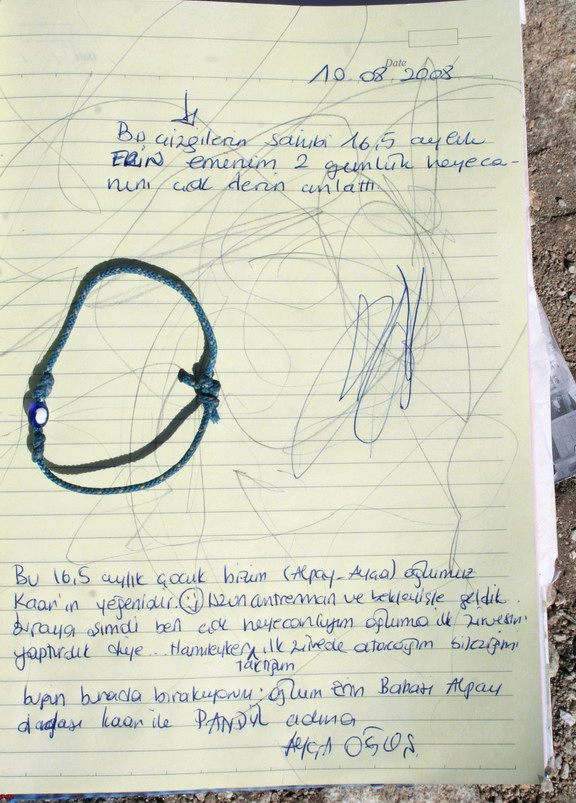 Date
10.08.2008
Bu çizgilerin sahibi 16,5 aylık
ERİN emenim 2 günlük heyeca-
nını çok derin anlattı
Bu 16,5 aylık çocuk bizim (Alpay-Ayça) oğlumuz
Kaan'ın yeğenidir. :) Uzun antrenman ve bekleyişle geldik
buraya şimdi ben çok heyecanlıyım oğluma ilk zirvesini
yaptırdık diye... Hamileyken ilk zirvede atacağım bilekliğimi
taktığım
bugün burada bırakıyorum; oğlum Erin Babası Alpay
dayısı Kaan ile adına
AYÇA